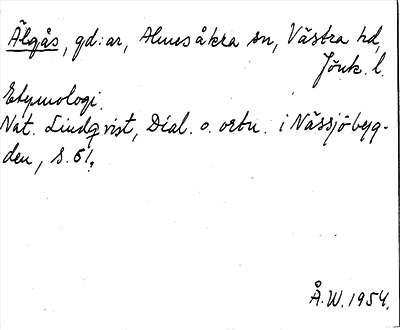 Älgås, gd:ar, Almesåkra sn, Västra hd,
Jönk. l.
Etymologi.
Nat. Lindqvist, Dial. o. ortn. i Nässjöbyg-
den, s. 61.
Å.W. 1954.